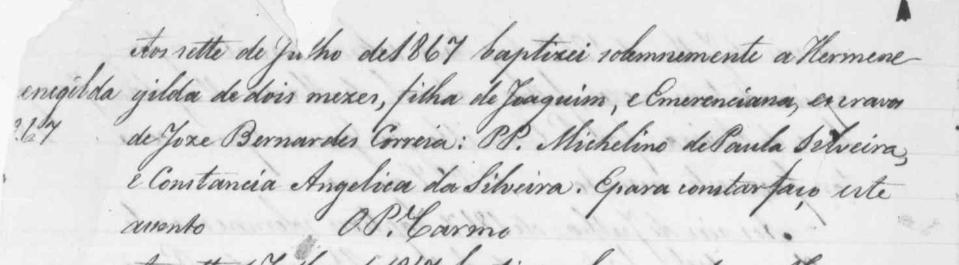 Aos sette de Julho de 1867 baptizei solemnemente a Hermene-
enegilda gilda de dois mezes, filha de Joaquim, e Emerenciana, escravos
de Joze Bernardes Correia: PP. Michelino de Paula Silveira,
e Constancia Angelica da Silveira. E para constar faço este
assento O P. Carmo